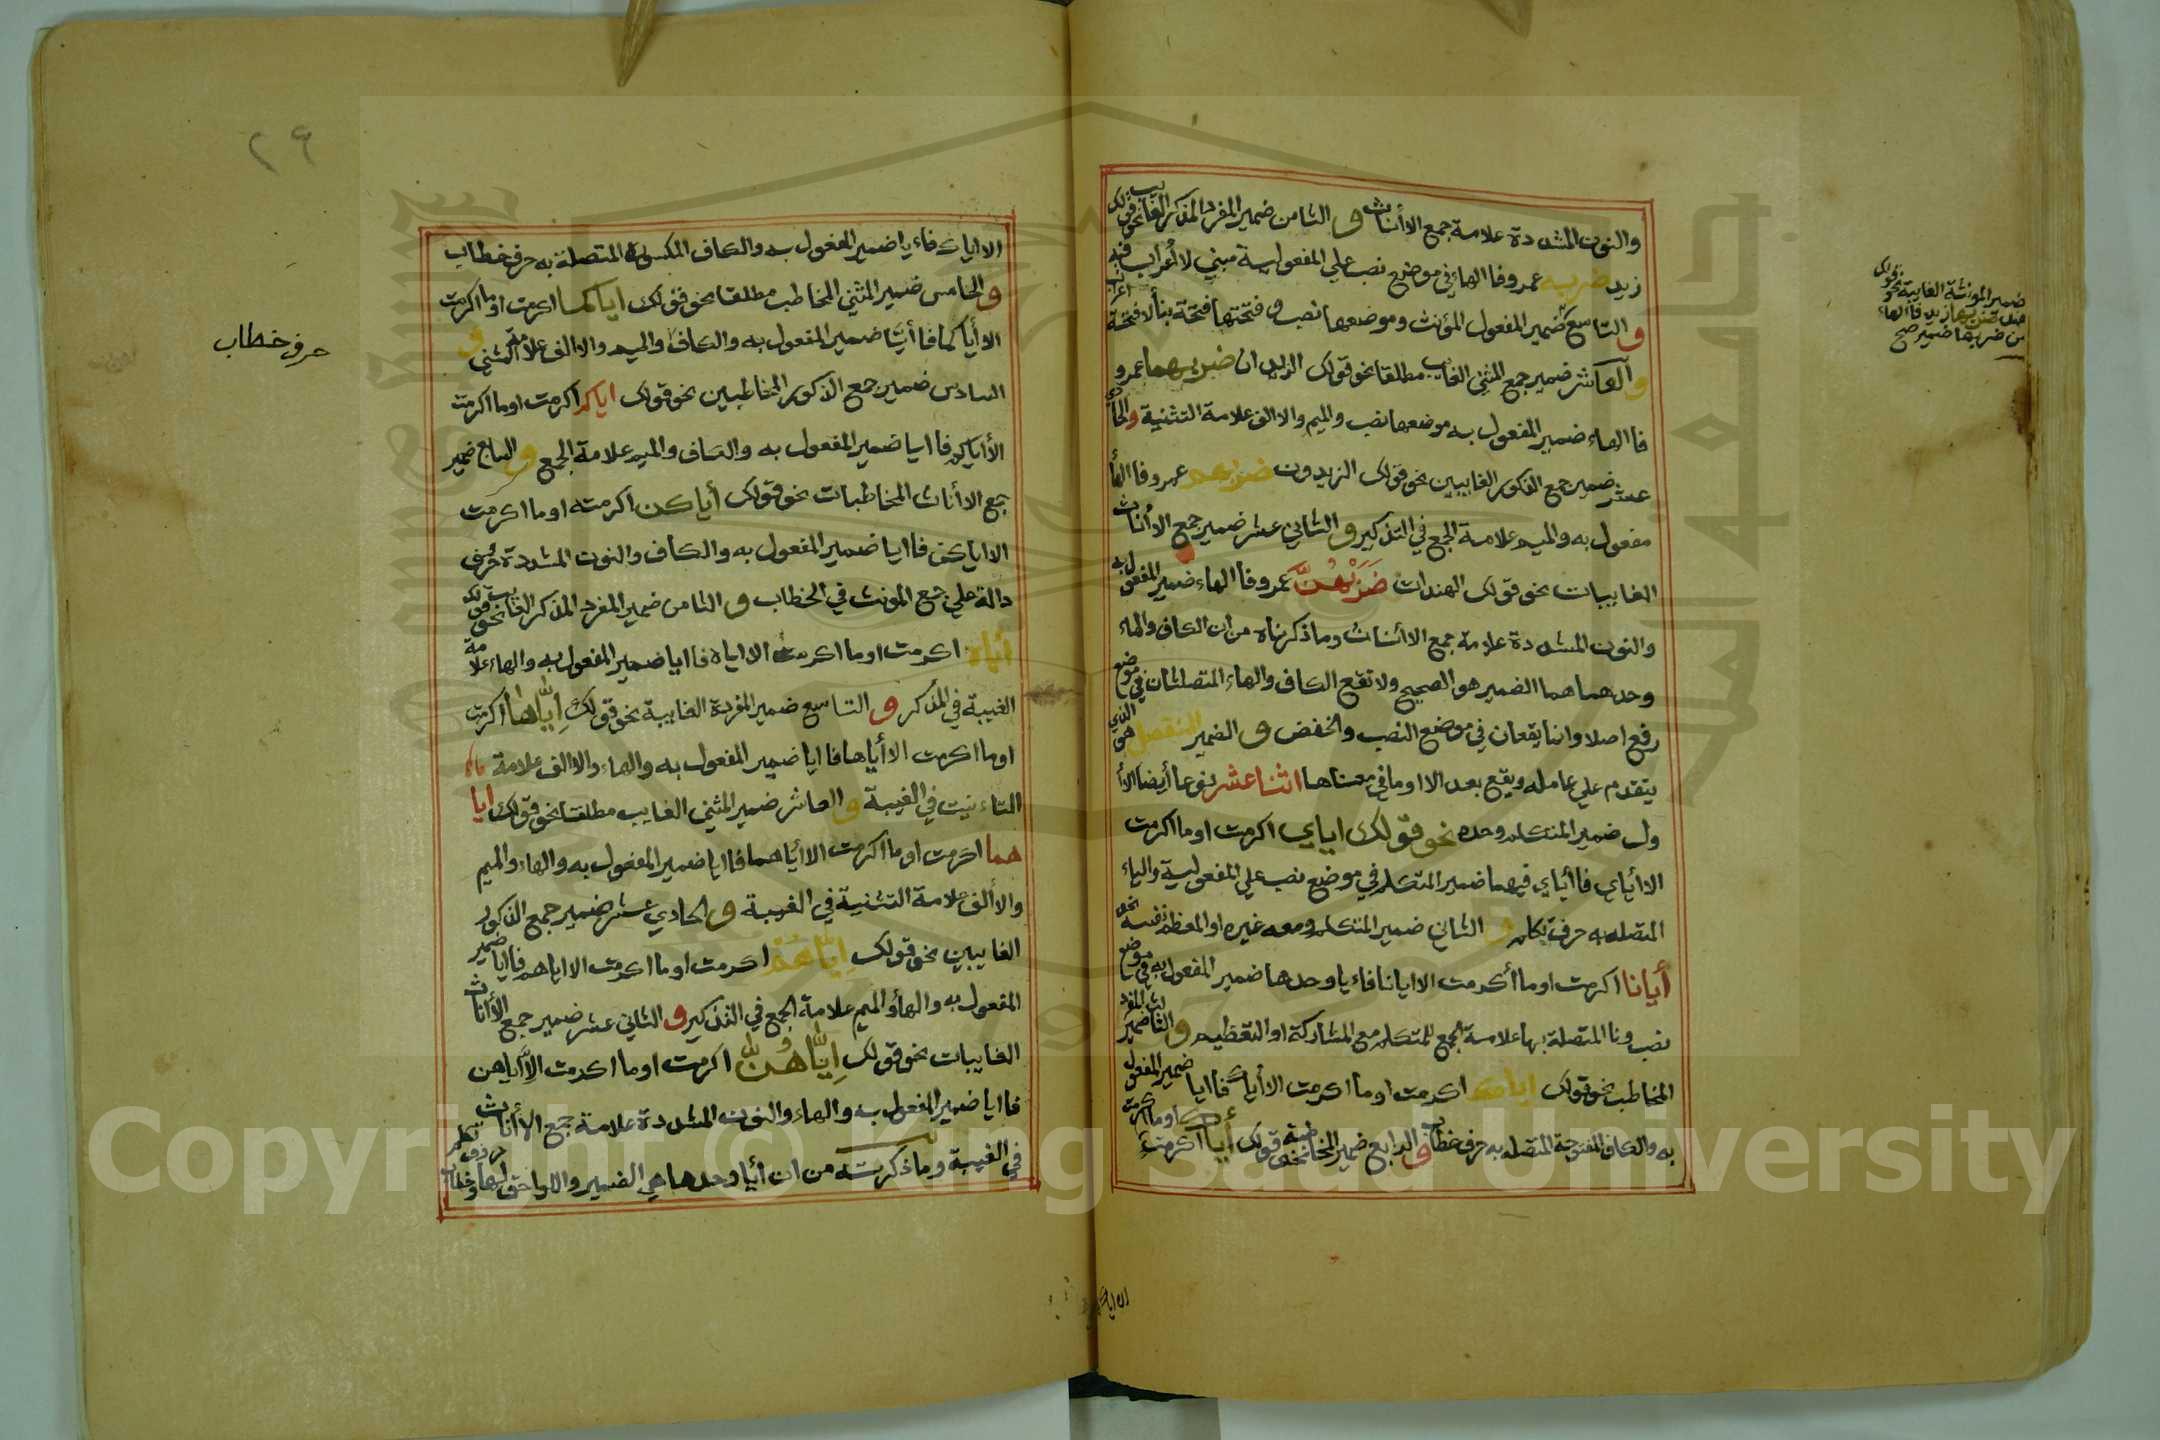 والنون المشددة علامة جمع الاأناث و الثامن ضمير المفرد المذكر الغايب نحو قولك
زيد ضربه عمرو فا الهاء في موضع نصب علي المفعولية مبني لا أعراب فيه
و التاسع ضمير المفعول المؤنث وموضعها نصب و فتحتها فتحة بنأ لا فتحة اعراب
و العاشر ضمير جمع المثني الغايب مطلقا نحو قولك الزيدان ضربهما عمرو
فا الهاء ضمير المفعول به موضعها نصب والميم والا الف علامة التثنية والحادي
عشر ضمير جمع الذكور الغايبين نحو قولك الزيدون ضربهم عمرو فا الهأ
مفعول به والميم علامة الجمع في التذكير و الثاني عشر ضمير جمع الاأناث
الغايبات نحو قولك الهندات ضَرَبْهُنَّ عمرو فأ الهاء ضمير المفعول به
والنون المشددة علامة جمع الاأناث وما ذكرناه من ان الكاف والهاء
وحدهما هما الضمير هو الصحيح ولا تقع الكاف والهاء المتصلتان في موضع
رفع اصلا وانما يقعان في موضع النصب والخفض و الضمير المنفصل الذي هو
يتقدم علي عامله ويقع بعد الا اوما في معناها اثنا عشر نوعا أيضا الأ
ول ضمير المتكلم وحده نحو قولك اياي اكرمت اوما اكرمت
الا أياي فا أياي فيهما ضمير المتكلم في موضع نصب علي المفعولية والياء
المتصله به حرف تكلم و الثاني ضمير المتكلم ومعه غيره او المعظم نفسه نحو
أيانا اكرمت اوما أكرمت الا ايانا فاء يا وحدها ضمير المفعول به في موضع
نصب ونا المتصلة بها علامة الجمع للمتكلم مع المشاركة او التعظيم و الثالث ضمير المفرد
المخاطب نحو قولك اياك اكرمت اوما اكرمت الا أياك فأ ايا ضمير المفعول
به والكاف المفتوحة المتصله به حرف خطاب و الرابع ضمير المخاطبة نحو قولك أياك اكرمت اوما اكرمت
ضمير المونثة الغايبة نحو قولك
هند ضربها زيد فا الهاء
من ضربها ضمير صح
الا اياك
٢٩
الا اياك فاء يا ضمير المفعول به والكاف المكسورة المتصلة به حرف خطاب
و الخامس ضمير المثني المخاطب مطلقا نحو قولك اياكما اكرمت اوما اكرمت
الا أياكما فا أيا ضمير المفعول به والكاف والميم والا الف علامة المثني و
السادس ضمير جمع الذكور المخاطبين نحو قولك اياكم اكرمت اوما اكرمت
الأ اياكم فا ايا ضمير المفعول به والكاف والميم علامة الجمع و السابع ضمير
جمع الاأناث المخاطبات نحو قولك أياكن اكرمته اوما اكرمت
الا اياكن فا ايا ضمير المفعول به والكاف والنون المشددة حرف
دالة علي جمع المونث في الخطاب و الثامن ضمير المفرد المذكر الغايب نحو قولك
أياه اكرمت اوما اكرمت الا اياه فا ايا ضمير المفعول به والهاء علامة
الغيبة في المذكر و التاسع ضمير المفردة الغايبة نحو قولك اِيَّاها اكرمت
اوما اكرمت الا أياها فا ايا ضمير المفعول به والهاء والا الف علامة
التاءنيت في الغيبة و العاشر ضمير المثني الغايب مطلقا نحو قولك ايا
هما اكرمت اوما اكرمت الا أياهما فا ايا ضمير المفعول به والهاء والميم
والا ألف علامة التثنية في الغيبة و الحادي عشر ضمير جمع الذكور
الغايبين نحو قولك اِيَّاهُمْ اكرمت اوما اكرمت الا اياهم فا ايا ضمير
المفعول به والهأ والميم علامة الجمع في التذكير و الثاني عشر ضمير جمع الأاناث
الغايبات نحو قولك اِيَّاهُنَّ اكرمت اوما اكرمت الاَّ اياهن
فا ايا ضمير المفعول به والهاء والنون المشددة علامة جمع الاأناث
في الغيبة وما ذكرته من ان أيا وحدها هي الضمير واللواحق لها حروف تكلم وخطاب
حرف خطاب
Copyright © King Saud University